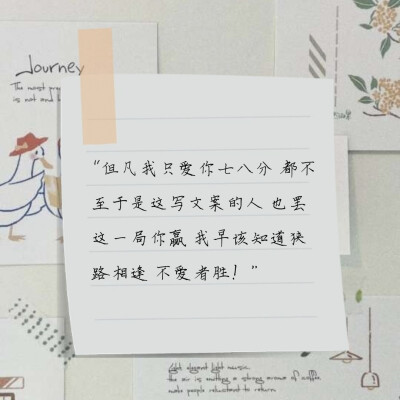 Journey
The most pre
is not and l
"但凡我只爱你七八分 都不
至于是这写文案的人 也罢
这一局你赢 我早该知道狭
路相逢 不爱者胜！"
light elegant light music.
the air is emitting a strong aroma of coffee
make people reluctant to return